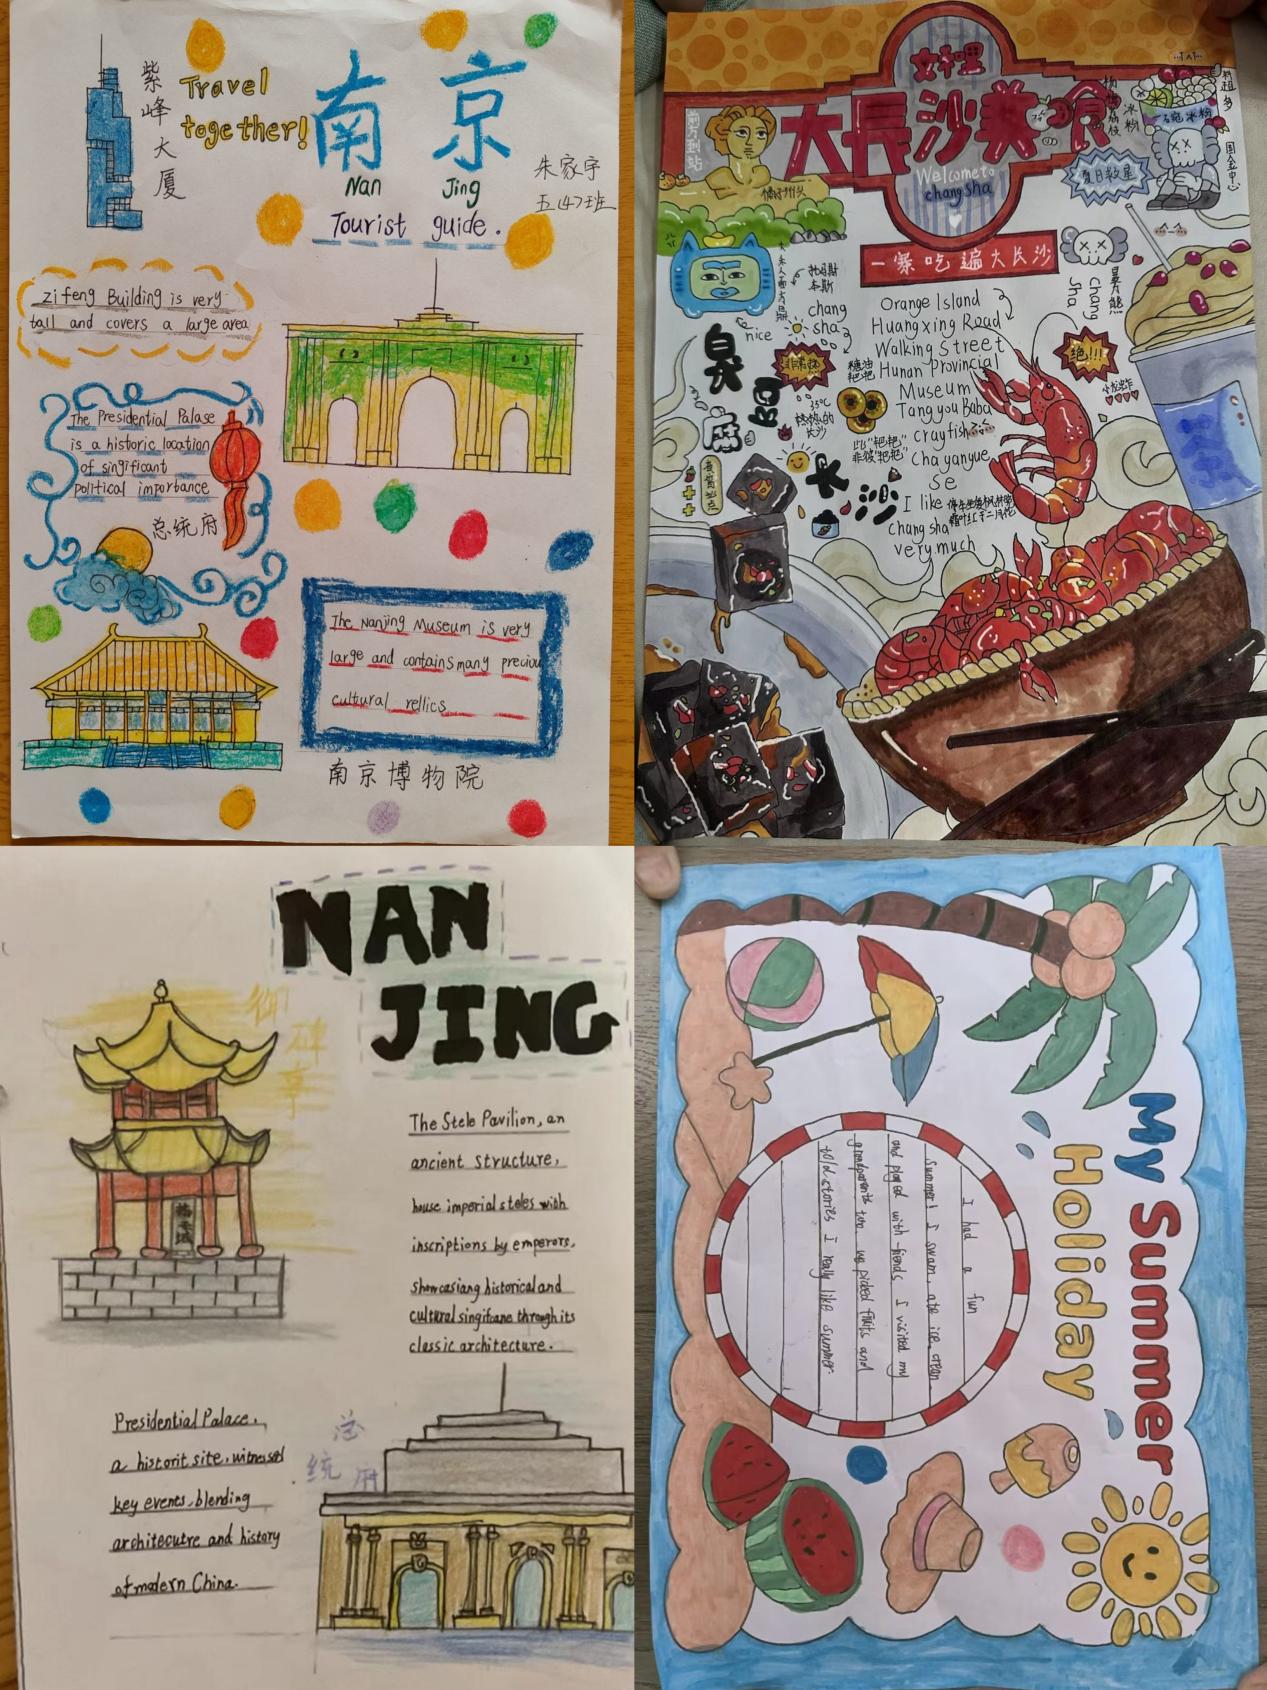 紫峰大厦
Travel
together!
南京
Nan Jing
Tourist guide.
朱家宇
五(4)班
zifeng Building is very
tall and covers a large area
The Presidential Palase
is a historic location
of singificant
political importance
总统府
The Nanjing Museum is very
large and contains many preciou
cultural rellics
南京博物院
好嘿
大長沙美食
Welcome to
changsha
前方到站
橘子洲头
杨枝荔枝冰粉
一碗冰粉
料超多
国金中心
夏日救星
一寨吃遍大长沙
nice
chang
sha
Chang
sha
Orange Island
Huangxing Road
Walking Street
Hunan Provincial
Museum
Tangyou Baba
crayfish
Chayanyue
Se
I like
chang sha
very much
臭豆腐
糖油
粑粑
35℃
长沙
比"粑粑"
非彼"粑粑"
停车坐爱枫林晚
霜叶红于二月花
绝!!!
小龙虾
NAN
JING
御碑亭
The Stele Pavilion, an
ancient structure,
house imperial steles with
inscriptions by emperors,
showcasiang historical and
cultural singificane through its
classic architecture.
Presidential Palace,
a historit site, witnessed
key events, blending
architecutre and history
of modern China.
总统府
My Summer
Holiday
I had a fun
summer! I swam, ate ice cream
and played with friends. I visited my
grandparents too. we picked fruits and
told stories I really like summer.